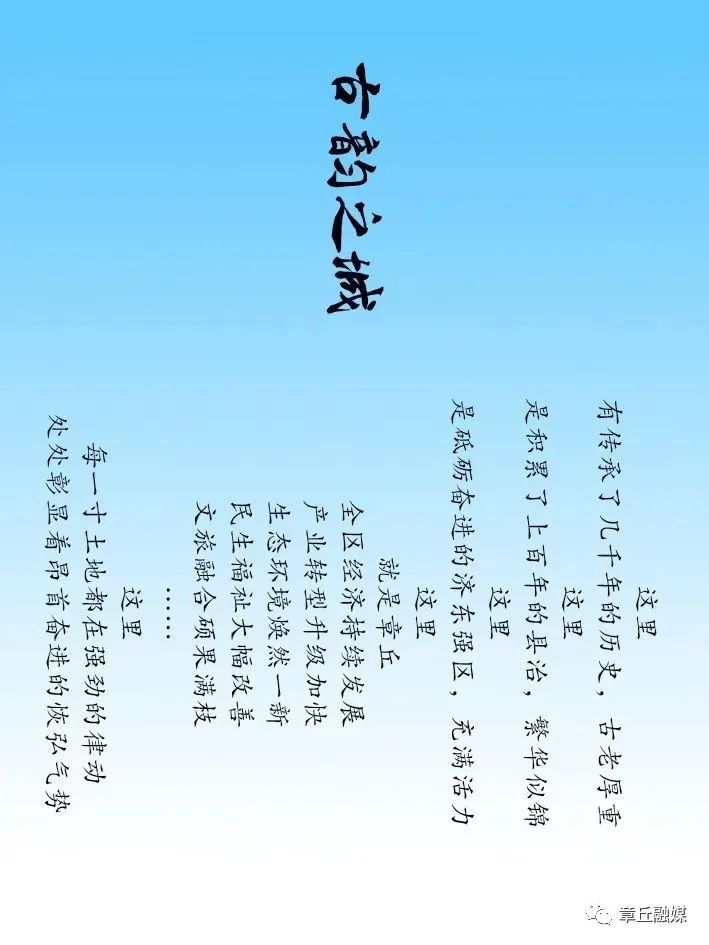 古韵之城
这里
有传承了几千年的历史，古老厚重
这里
是积累了上百年的县治，繁华似锦
这里
是砥砺奋进的济东强区，充满活力
这里
就是章丘
全区经济持续发展
产业转型升级加快
生态环境焕然一新
民生福祉大幅改善
文旅融合硕果满枝
……
这里
每一寸土地都在强劲的律动
处处彰显着昂首奋进的恢弘气势
章丘融媒